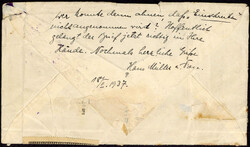 wer konnte denn ahnen daß Einschreiben
nicht angenommen wird? Hoffentlich
gelangt der Brief jetzt richtig in Ihre
Hände. Nochmals herzliche Grüße
Hans Müller u. Frau.
1937.